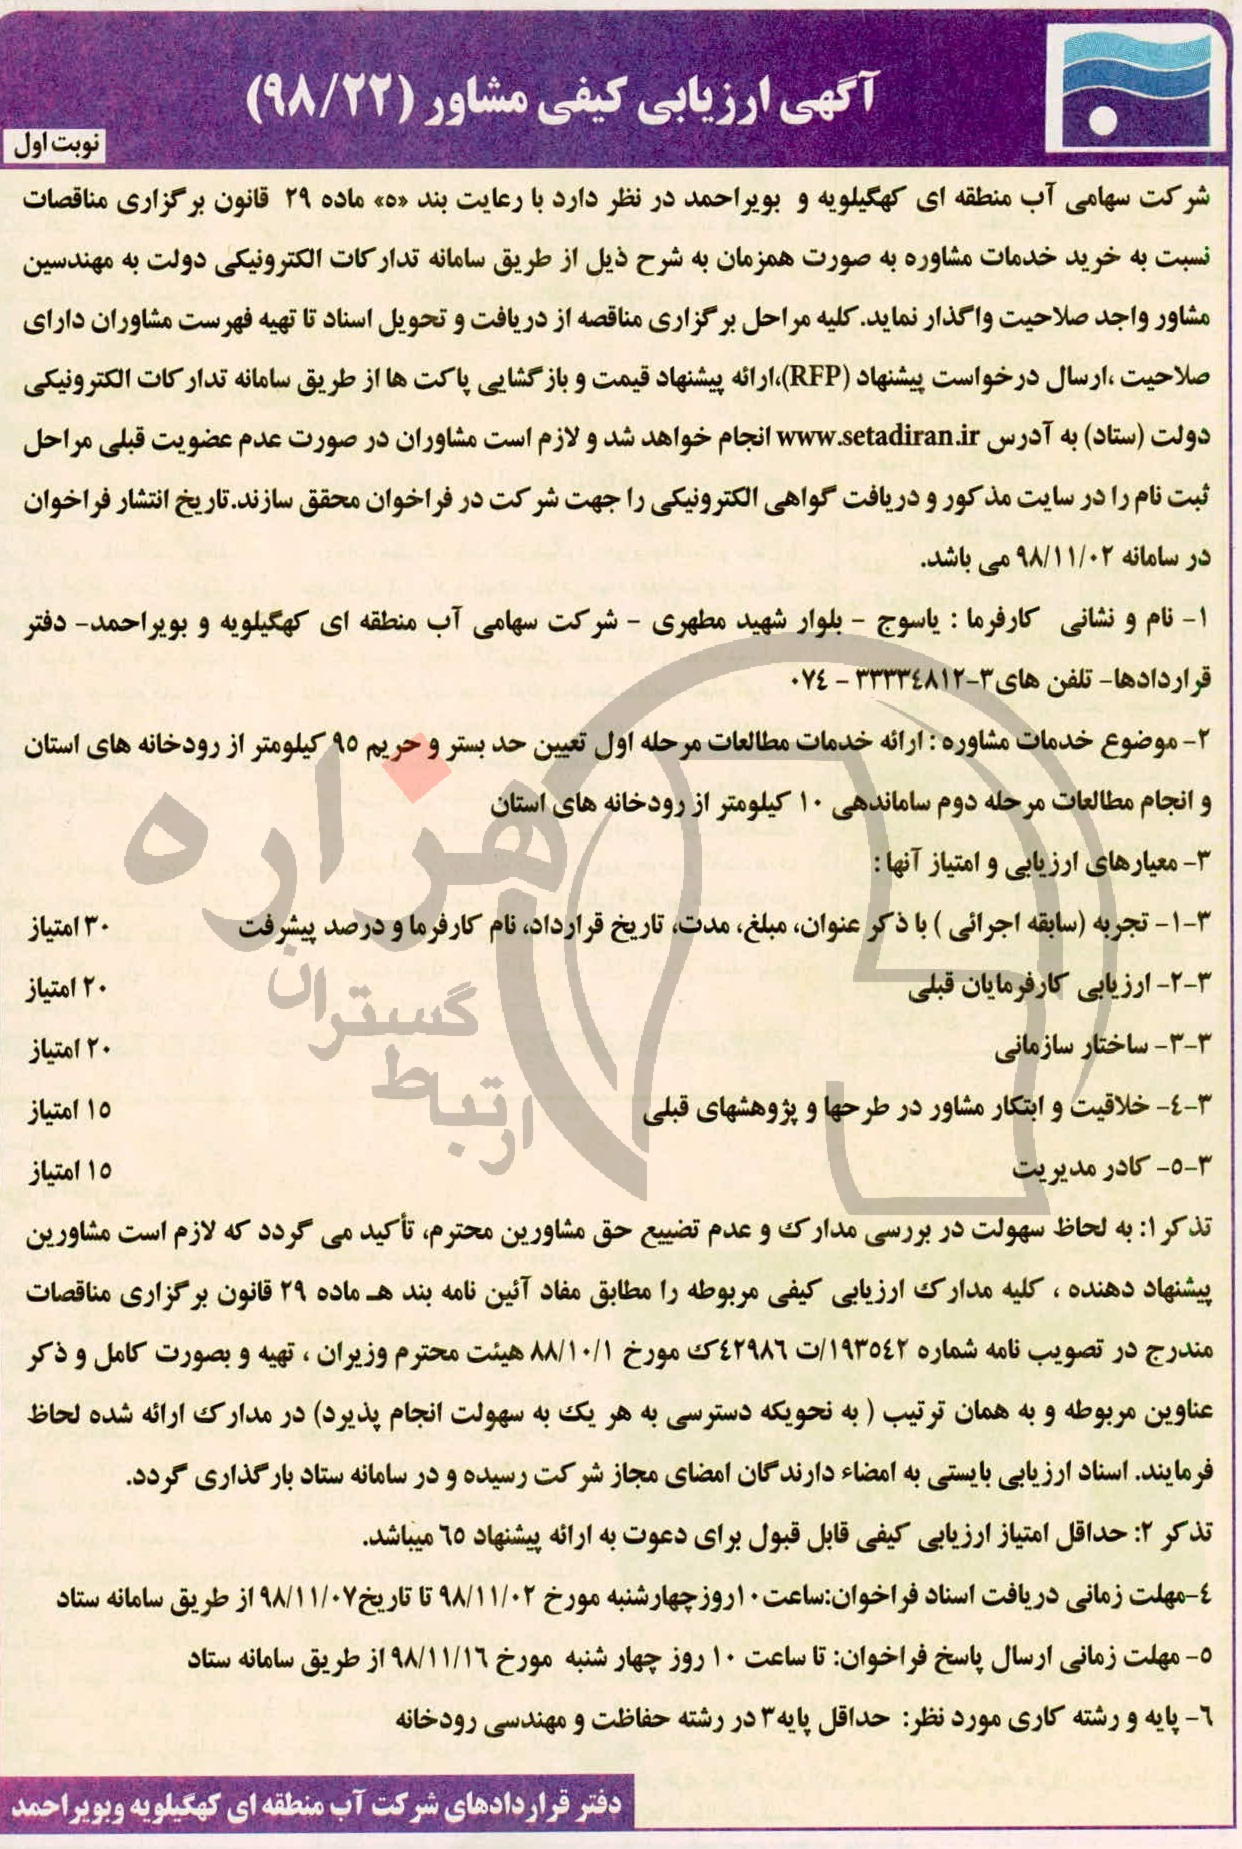 آگهی ارزیابی کیفی مشاور (۹۸/۲۲)
نوبت اول
شرکت سهامی آب منطقه ای کهگیلویه و بویراحمد در نظر دارد با رعایت بند «ه» ماده ۲۹ قانون برگزاری مناقصات
نسبت به خرید خدمات مشاوره به صورت همزمان به شرح ذیل از طریق سامانه تدارکات الکترونیکی دولت به مهندسین
مشاور واجد صلاحیت واگذار نماید. کلیه مراحل برگزاری مناقصه از دریافت و تحویل اسناد تا تهیه فهرست مشاوران دارای
صلاحیت ،ارسال درخواست پیشنهاد (RFP)،ارائه پیشنهاد قیمت و بازگشایی پاکت ها از طریق سامانه تدارکات الکترونیکی
دولت (ستاد) به آدرس www.setadiran.ir انجام خواهد شد و لازم است مشاوران در صورت عدم عضویت قبلی مراحل
ثبت نام را در سایت مذکور و دریافت گواهی الکترونیکی را جهت شرکت در فراخوان محقق سازند.تاریخ انتشار فراخوان
در سامانه ۹۸/۱۱/۰۲ می باشد.
۱- نام و نشانی کارفرما : یاسوج - بلوار شهید مطهری - شرکت سهامی آب منطقه ای کهگیلویه و بویراحمد- دفتر
قراردادها- تلفن های۳-۳۳۳۳۴۸۱۲ - ۰۷۴
۲- موضوع خدمات مشاوره : ارائه خدمات مطالعات مرحله اول تعیین حد بستر و حریم ۹۵ کیلومتر از رودخانه های استان
و انجام مطالعات مرحله دوم ساماندهی ۱۰ کیلومتر از رودخانه های استان
۳- معیارهای ارزیابی و امتیاز آنها :
۳-۱- تجربه (سابقه اجرائی ) با ذکر عنوان، مبلغ، مدت، تاریخ قرارداد، نام کارفرما و درصد پیشرفت ۳۰ امتیاز
۳-۲- ارزیابی کارفرمایان قبلی ۲۰ امتیاز
۳-۳- ساختار سازمانی ۲۰ امتیاز
۳-۴- خلاقیت و ابتکار مشاور در طرحها و پژوهشهای قبلی ۱۵ امتیاز
۳-۵- کادر مدیریت ۱۵ امتیاز
تذکر ۱: به لحاظ سهولت در بررسی مدارک و عدم تضییع حق مشاورین محترم، تأکید می گردد که لازم است مشاورین
پیشنهاد دهنده ، کلیه مدارک ارزیابی کیفی مربوطه را مطابق مفاد آئین نامه بند هـ ماده ۲۹ قانون برگزاری مناقصات
مندرج در تصویب نامه شماره ۱۹۳۵۴۲/ت ۴۲۹۸۶ک مورخ ۸۸/۱۰/۱ هیئت محترم وزیران ، تهیه و بصورت کامل و ذکر
عناوین مربوطه و به همان ترتیب ( به نحویکه دسترسی به هر یک به سهولت انجام پذیرد) در مدارک ارائه شده لحاظ
فرمایند. اسناد ارزیابی بایستی به امضاء دارندگان امضای مجاز شرکت رسیده و در سامانه ستاد بارگذاری گردد.
تذکر ۲: حداقل امتیاز ارزیابی کیفی قابل قبول برای دعوت به ارائه پیشنهاد ۶۵ میباشد.
۴-مهلت زمانی دریافت اسناد فراخوان:ساعت۱۰روزچهارشنبه مورخ ۹۸/۱۱/۰۲ تا تاریخ۹۸/۱۱/۰۷ از طریق سامانه ستاد
۵- مهلت زمانی ارسال پاسخ فراخوان: تا ساعت ۱۰ روز چهار شنبه مورخ ۹۸/۱۱/۱۶ از طریق سامانه ستاد
۶- پایه و رشته کاری مورد نظر: حداقل پایه۳ در رشته حفاظت و مهندسی رودخانه
دفتر قراردادهای شرکت آب منطقه ای کهگیلویه وبویراحمد
هزاره
گستران
ارتباط